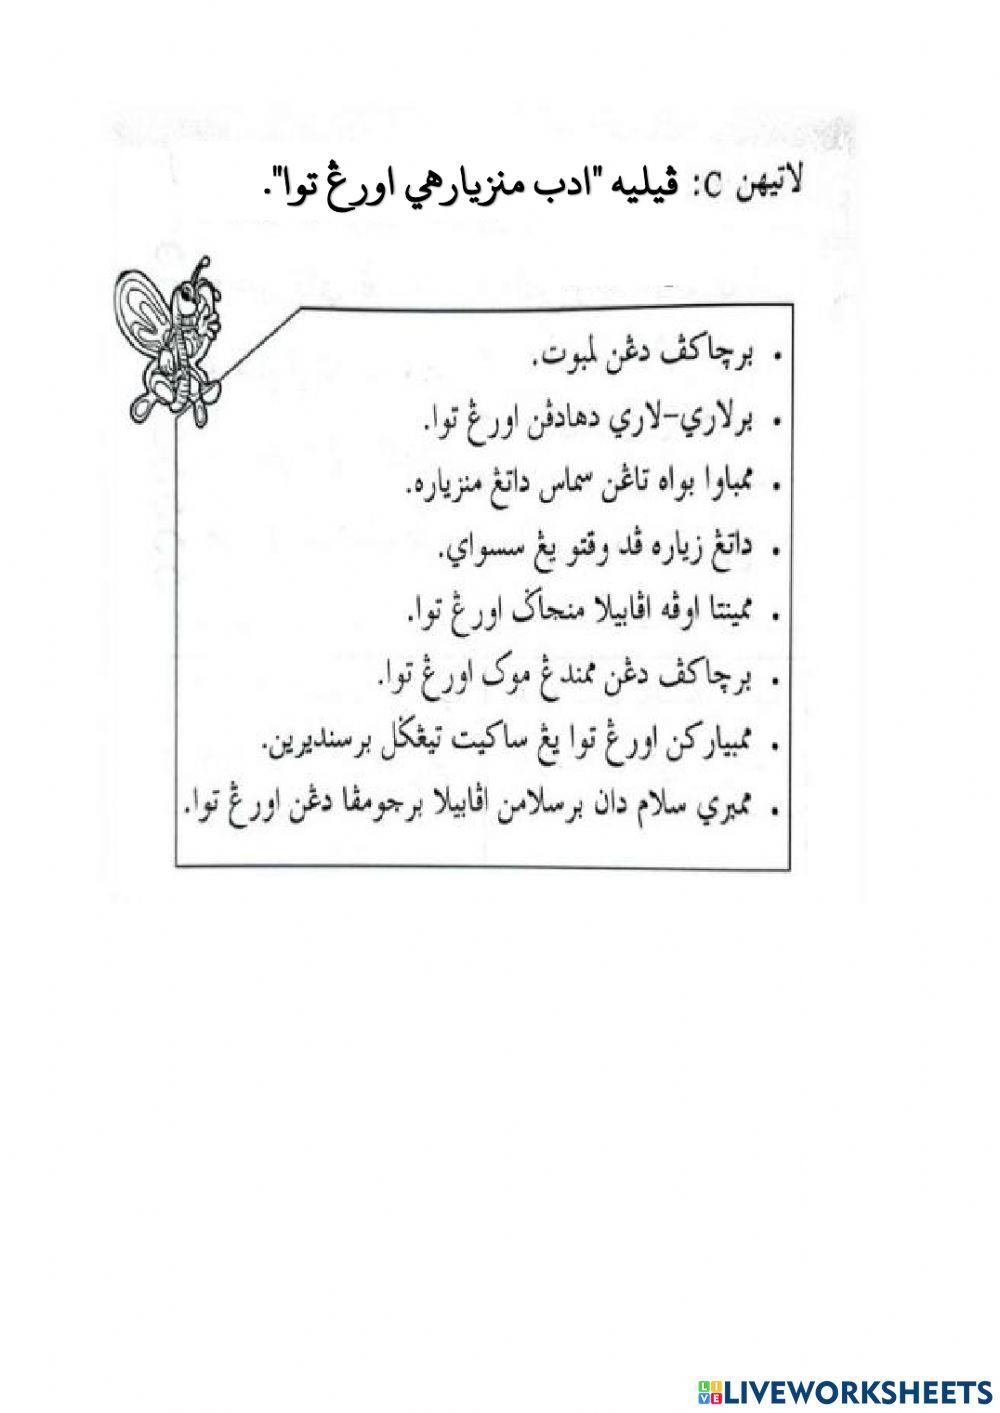 لاتيهن C: ڤيليه "ادب منزيارهي اورڠ توا".
• برچاكڤ دڠن لمبوت.
• برلاري-لاري دهادڤن اورڠ توا.
• ممباوا بواه تاڠن سماس داتڠ منزياره.
• داتڠ زياره ڤد وقتو يڠ سسواي.
• ممينتا اوڤه اڤابيلا منجاݢ اورڠ توا.
• برچاكڤ دڠن ممندڠ موک اورڠ توا.
• ممبياركن اورڠ توا يڠ ساكيت تيڠݢل برسنديرين.
• ممبري سلام دان برسلامن اڤابيلا برجومڤا دڠن اورڠ توا.
LIVEWORKSHEETS